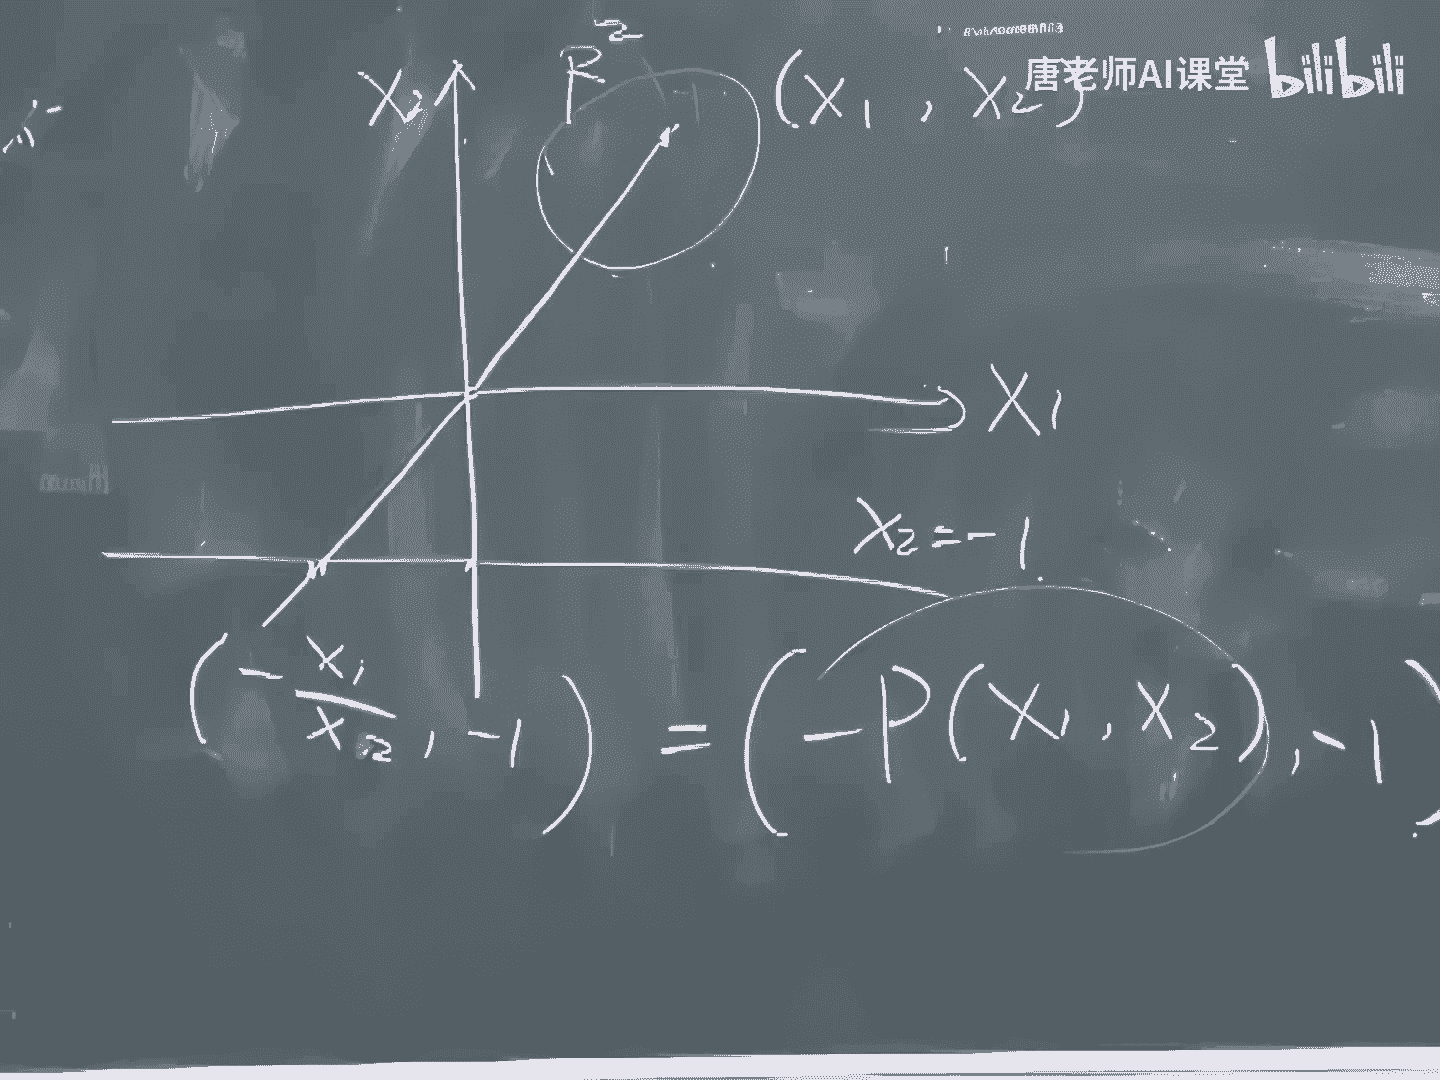 唐老师AI课堂 bilibili
X₂ R² (X₁, X₂)
X₁
X₂=-1
(-X₁/X₂, -1) = (-P(X₁, X₂), -1)